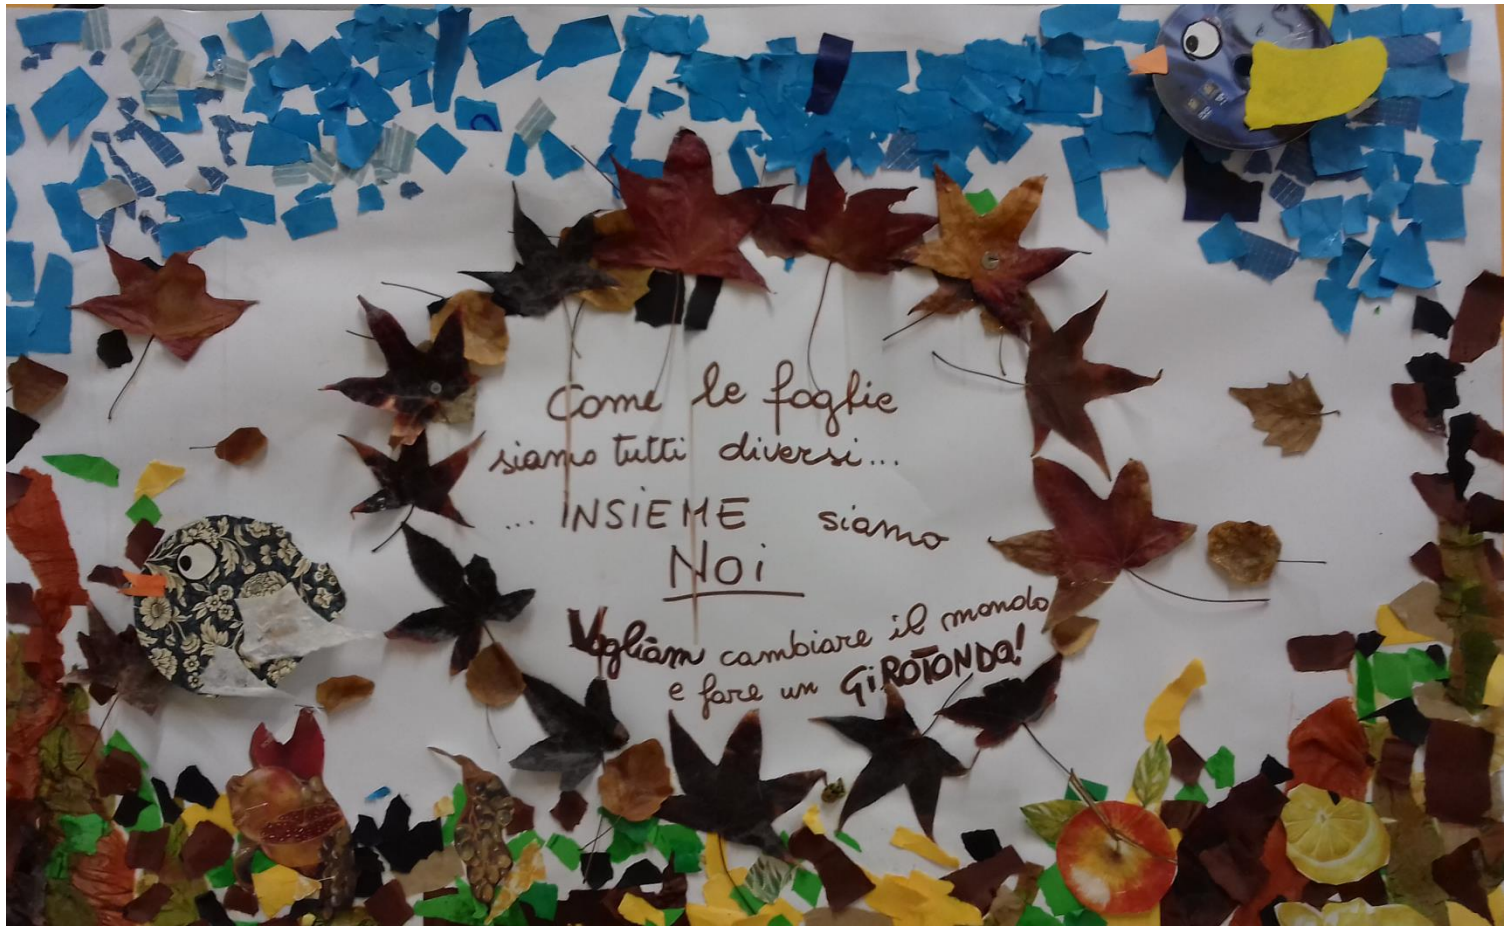 Come le foglie
siamo tutti diversi...
... INSIEME siamo
NOi
Vogliam cambiare il mondo
e fare un GiROTONDO!